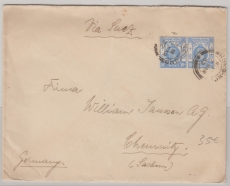 Via Suez.
Firma
William Janssen AG
Chemnitz
(Sachsen)
35€
Germany.